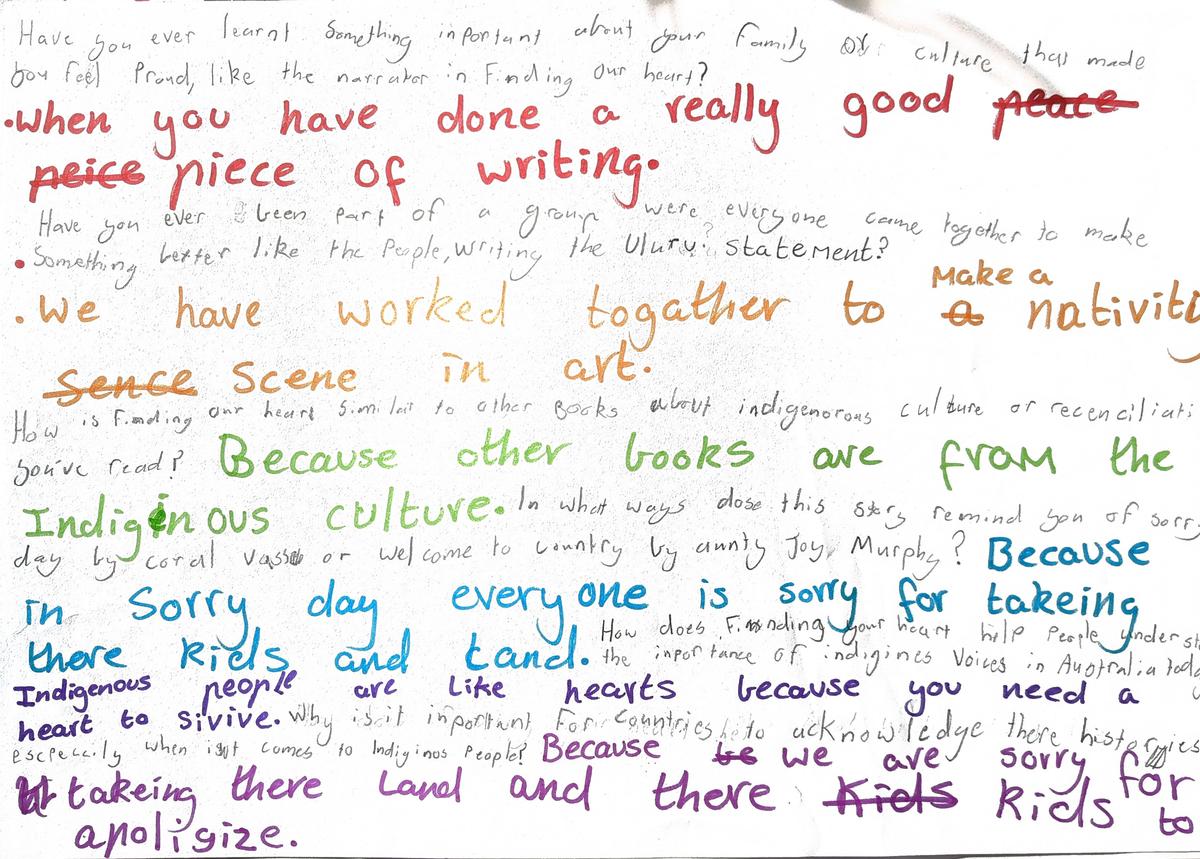 Have you ever learnt Something inportant about your family or culture that made
you feel Proud, like the narrator in Finding our heart?
•when you have done a really good peace
peice piece of writing.
Have you ever been part of a group were everyone came together to make
• Something better like the People, writing the Ulury? Statement?
Make a
. We have worked togather to a nativiti
Sence Scene in art.
How is Finding our heart Similar to other Books about indigenorous culture or reconciliati
you've read? Because other books are from the
Indiginous culture. In what ways dose this story remind you of sorry
day by coral vass or welcome to country by aunty Joy Murphy? Because
in Sorry day everyone is sorry for takeing
there kids and Land. How does Finnding your heart help People underst
the inportance of indigines Voices in Australia today
Indigenous people are Like hearts because you need a
heart to sivive. Why is it inportant For Countries to acknowledge there histories
especcily when it comes to Indiginos People? Because we are sorry for
takeing there Land and there Kids kids to
apoligize.